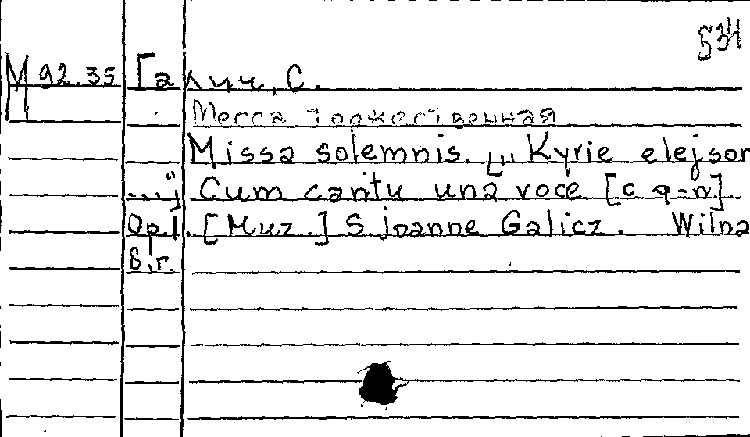 534
М 92.35 Галич, С.
Месса торжественная
Missa solemnis. [„Kyrie elejson
..."] Cum cantu una voce [c ф-п]
Op. 1. [Muz.] S joanne Galicz. Wilna
S. r.